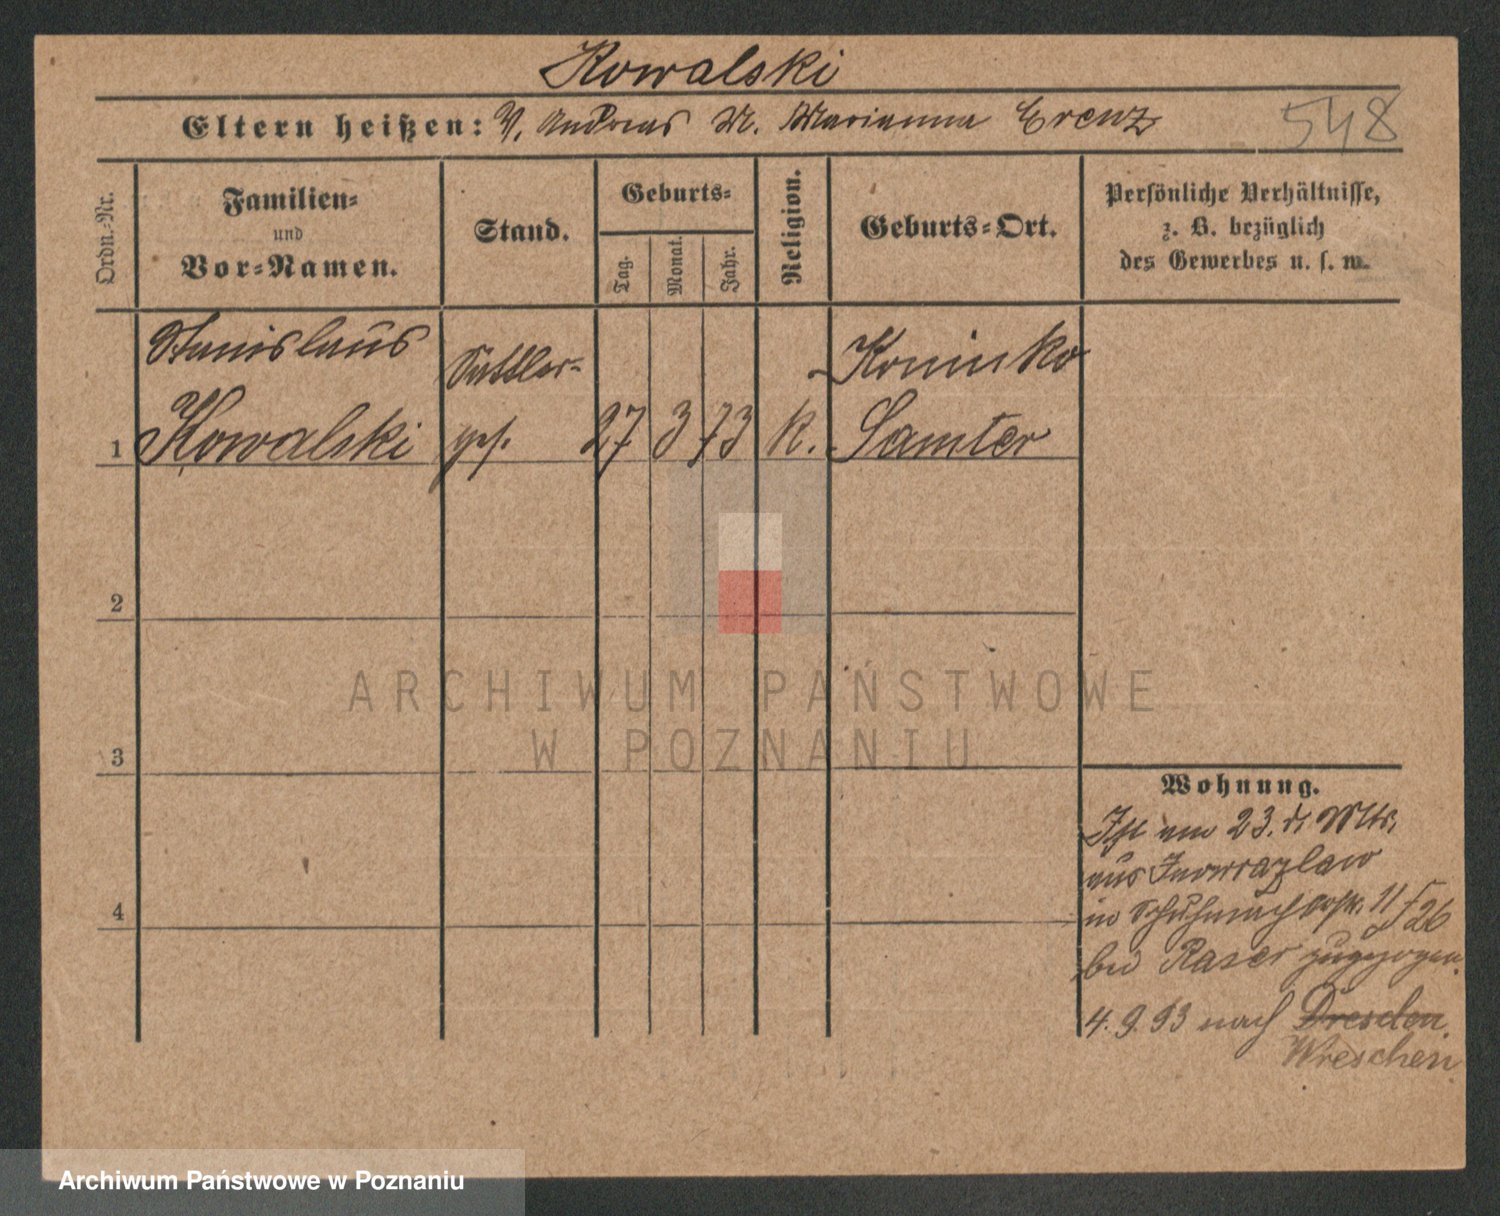 Kowalski
Eltern heißen: V. Andreas M. Marianna Erenz
548
Ordn.-Nr.
Familien-
und
Vor-Namen.
Stand.
Geburts-
Tag.
Monat.
Jahr.
Religion.
Geburts-Ort.
Persönliche Verhältnisse,
z. B. bezüglich
des Gewerbes u. s. w.
Stanislaus
Kowalski
Sattler-
ges.
27 3 73 K.
Koninko
Samter
1
2
3
4
Wohnung.
Ist am 23. d. Mts.
aus Inowrazlaw
in Schuhmacherstr. 11/26
bei Raser zugezogen.
4.9.93 nach Dresden.
Wreschen
ARCHIWUM PAŃSTWOWE
W POZNANIU
Archiwum Państwowe w Poznaniu